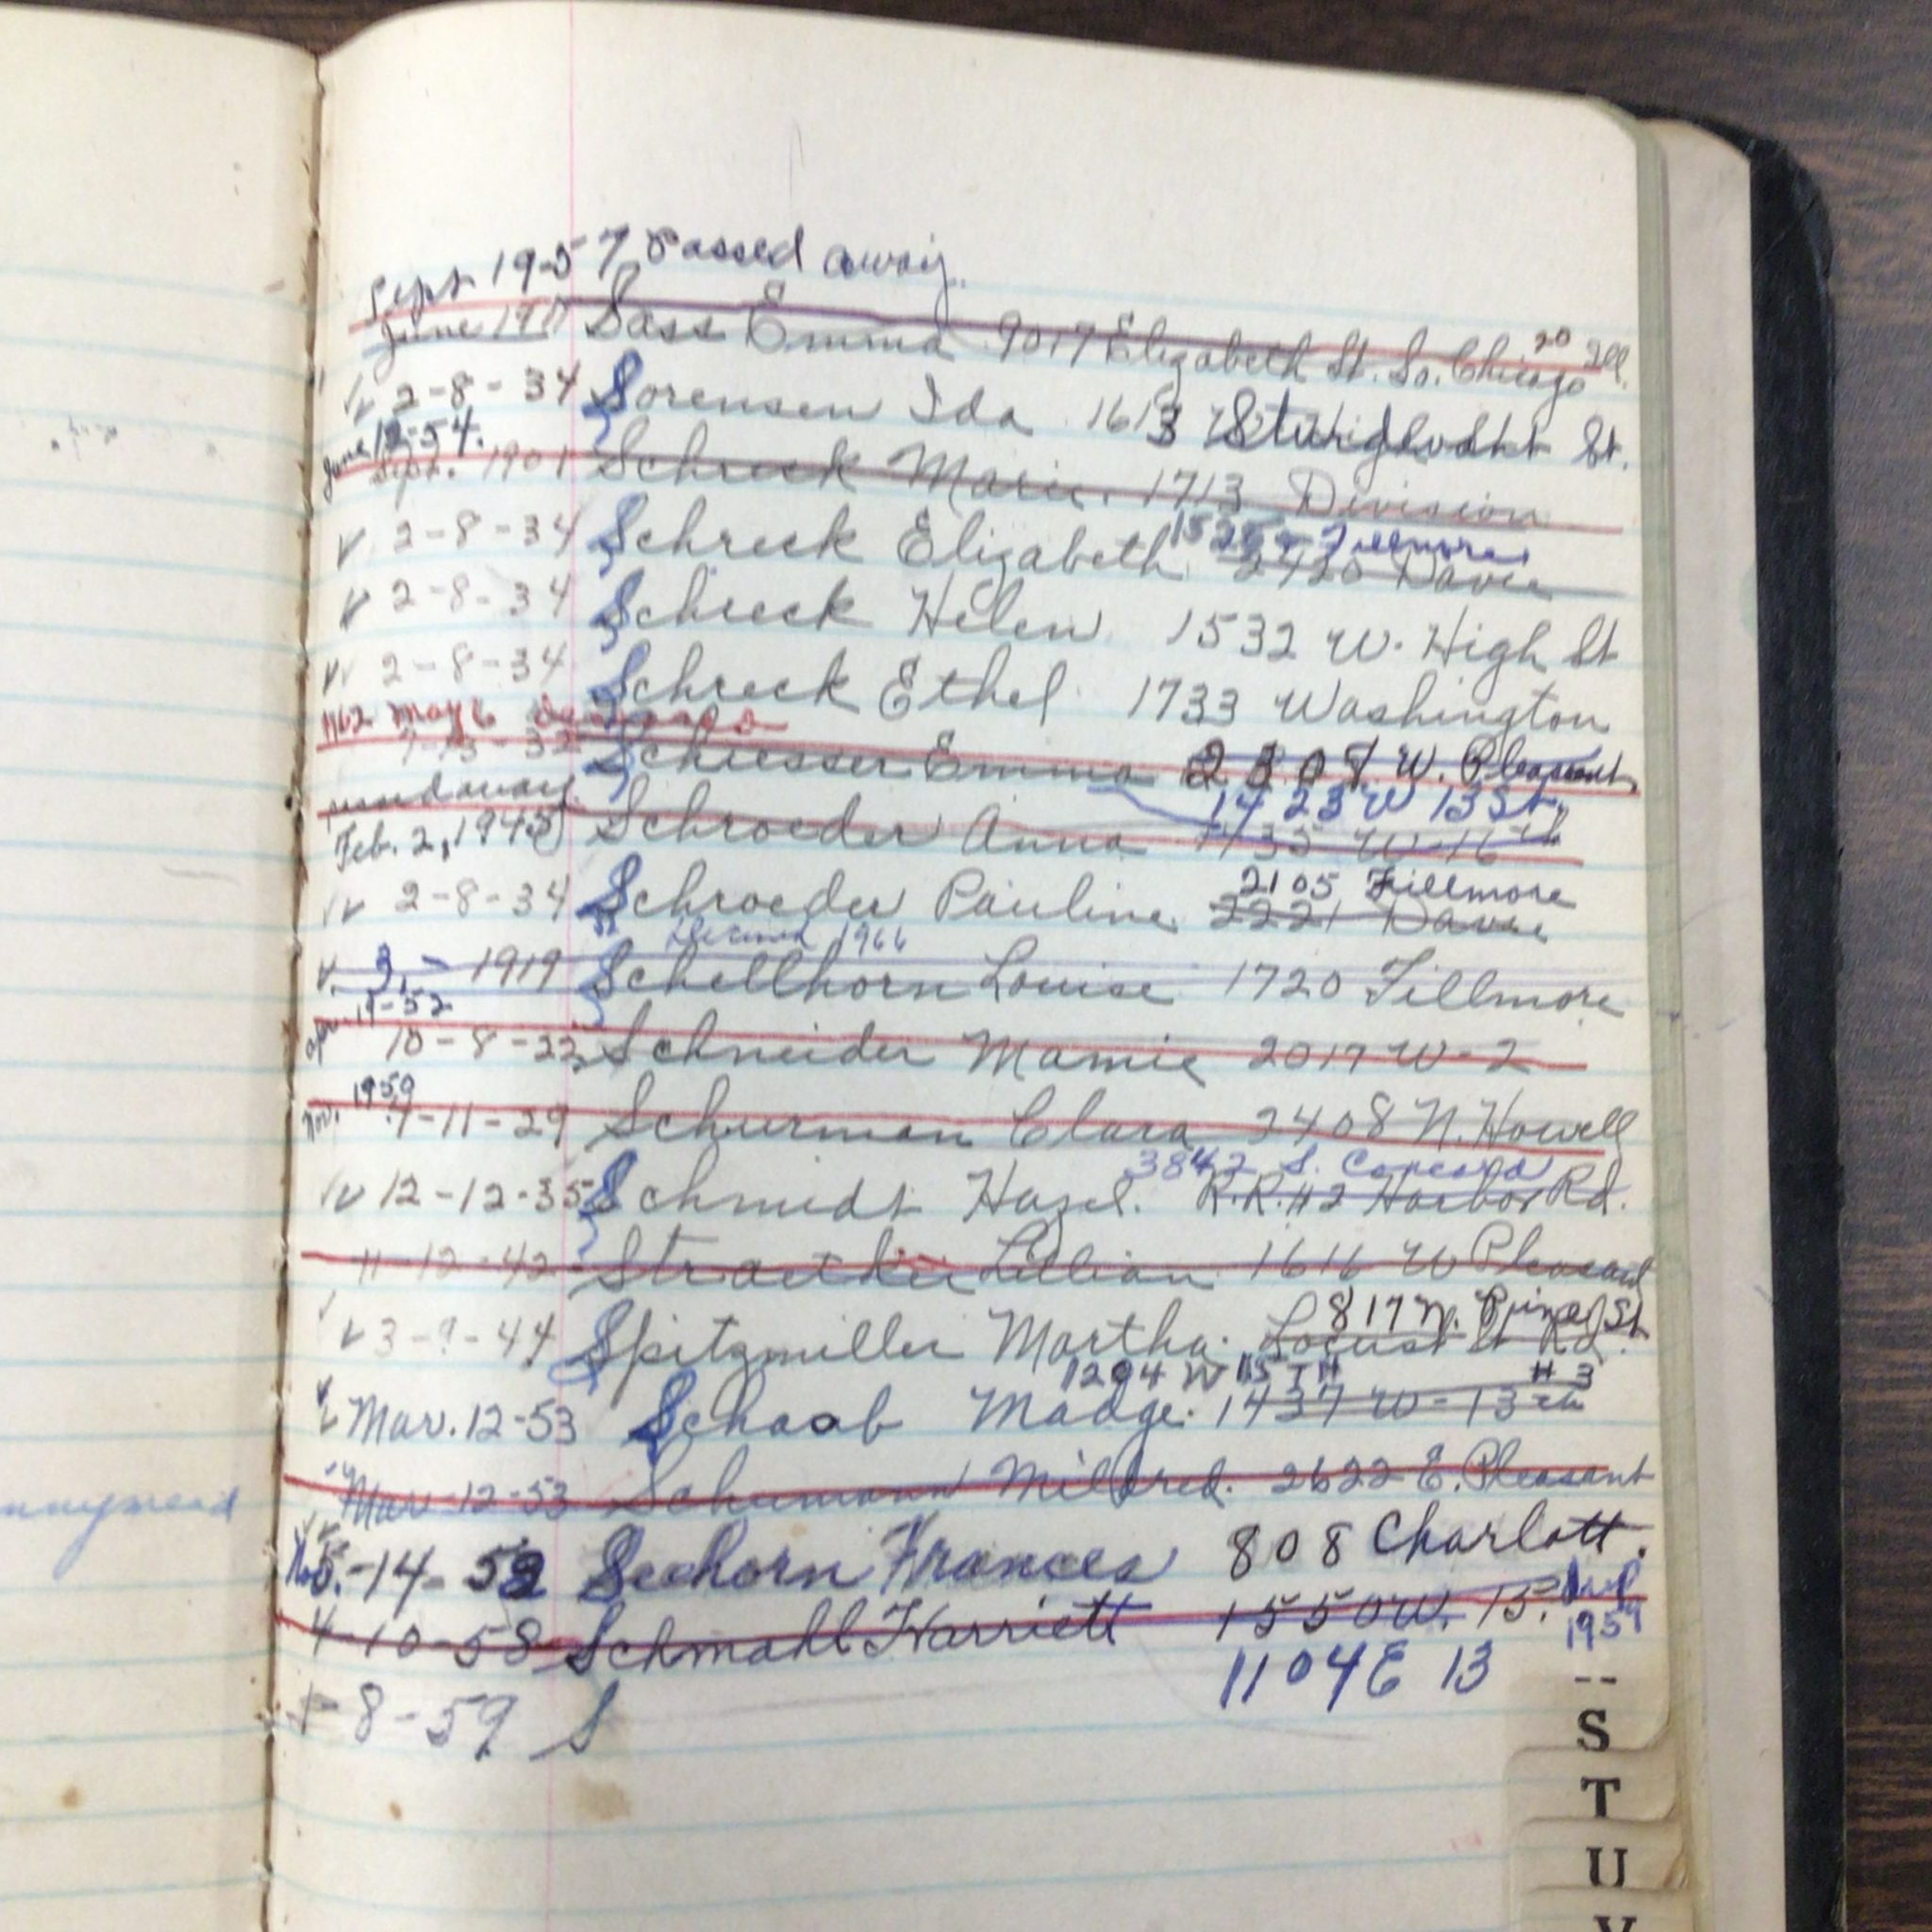 Sept 19-57 Passed away.
June 1911 Sass Emma 9017 Elizabeth St. So. Chicago 20 Ill.
2-8-34 Sorensen Ida 1613 St.
June 12-54.
Sept. 1901 Schreck Marie. 1713 Division
1525 Fillmore
v 2-8-34 Schreck Elizabeth 2420 Davie
v 2-8-34 Schreck Helen 1532 W. High St
2-8-34 Schreck Ethel 1733 Washington
1962 May 6 Deceased
Schiesser Emma 2108 W. Pleasant
away 1423 W 13 St.
Feb. 2, 1945 Schroeder Anna 1435 W-16th
2105 Fillmore
2-8-34 Schroeder Pauline 2221 Davie
1966
v 3, - 1919 Schellhorn Louise 1720 Fillmore
Apr. 19-52
10-8-22 Schneider Mamie 2017 W-2
Nov. 1959
4-11-29 Schurman Clara 2408 N. Howell
3842 S. Concord
12-12-35 Schmidt Hazel. R.R.#2 Harbor Rd.
11-12-42 Lillian 1616 W Pleasant
817 N. Pine St
v 3-9-44 Spitzmiller Martha. Locust St Rd.
1204 W 15TH #3
Mar. 12-53 Schaab Madge. 1437 W-13th
Mar 12-53 Schumann Mildred. 2622 E. Pleasant
5-14-59 Seehorn Frances 808 Charlott.
4-10-58 Schmahl Harriett 1550 W. 15. 1959
1104 E 13
1-8-59 S
--
S
T
U
V